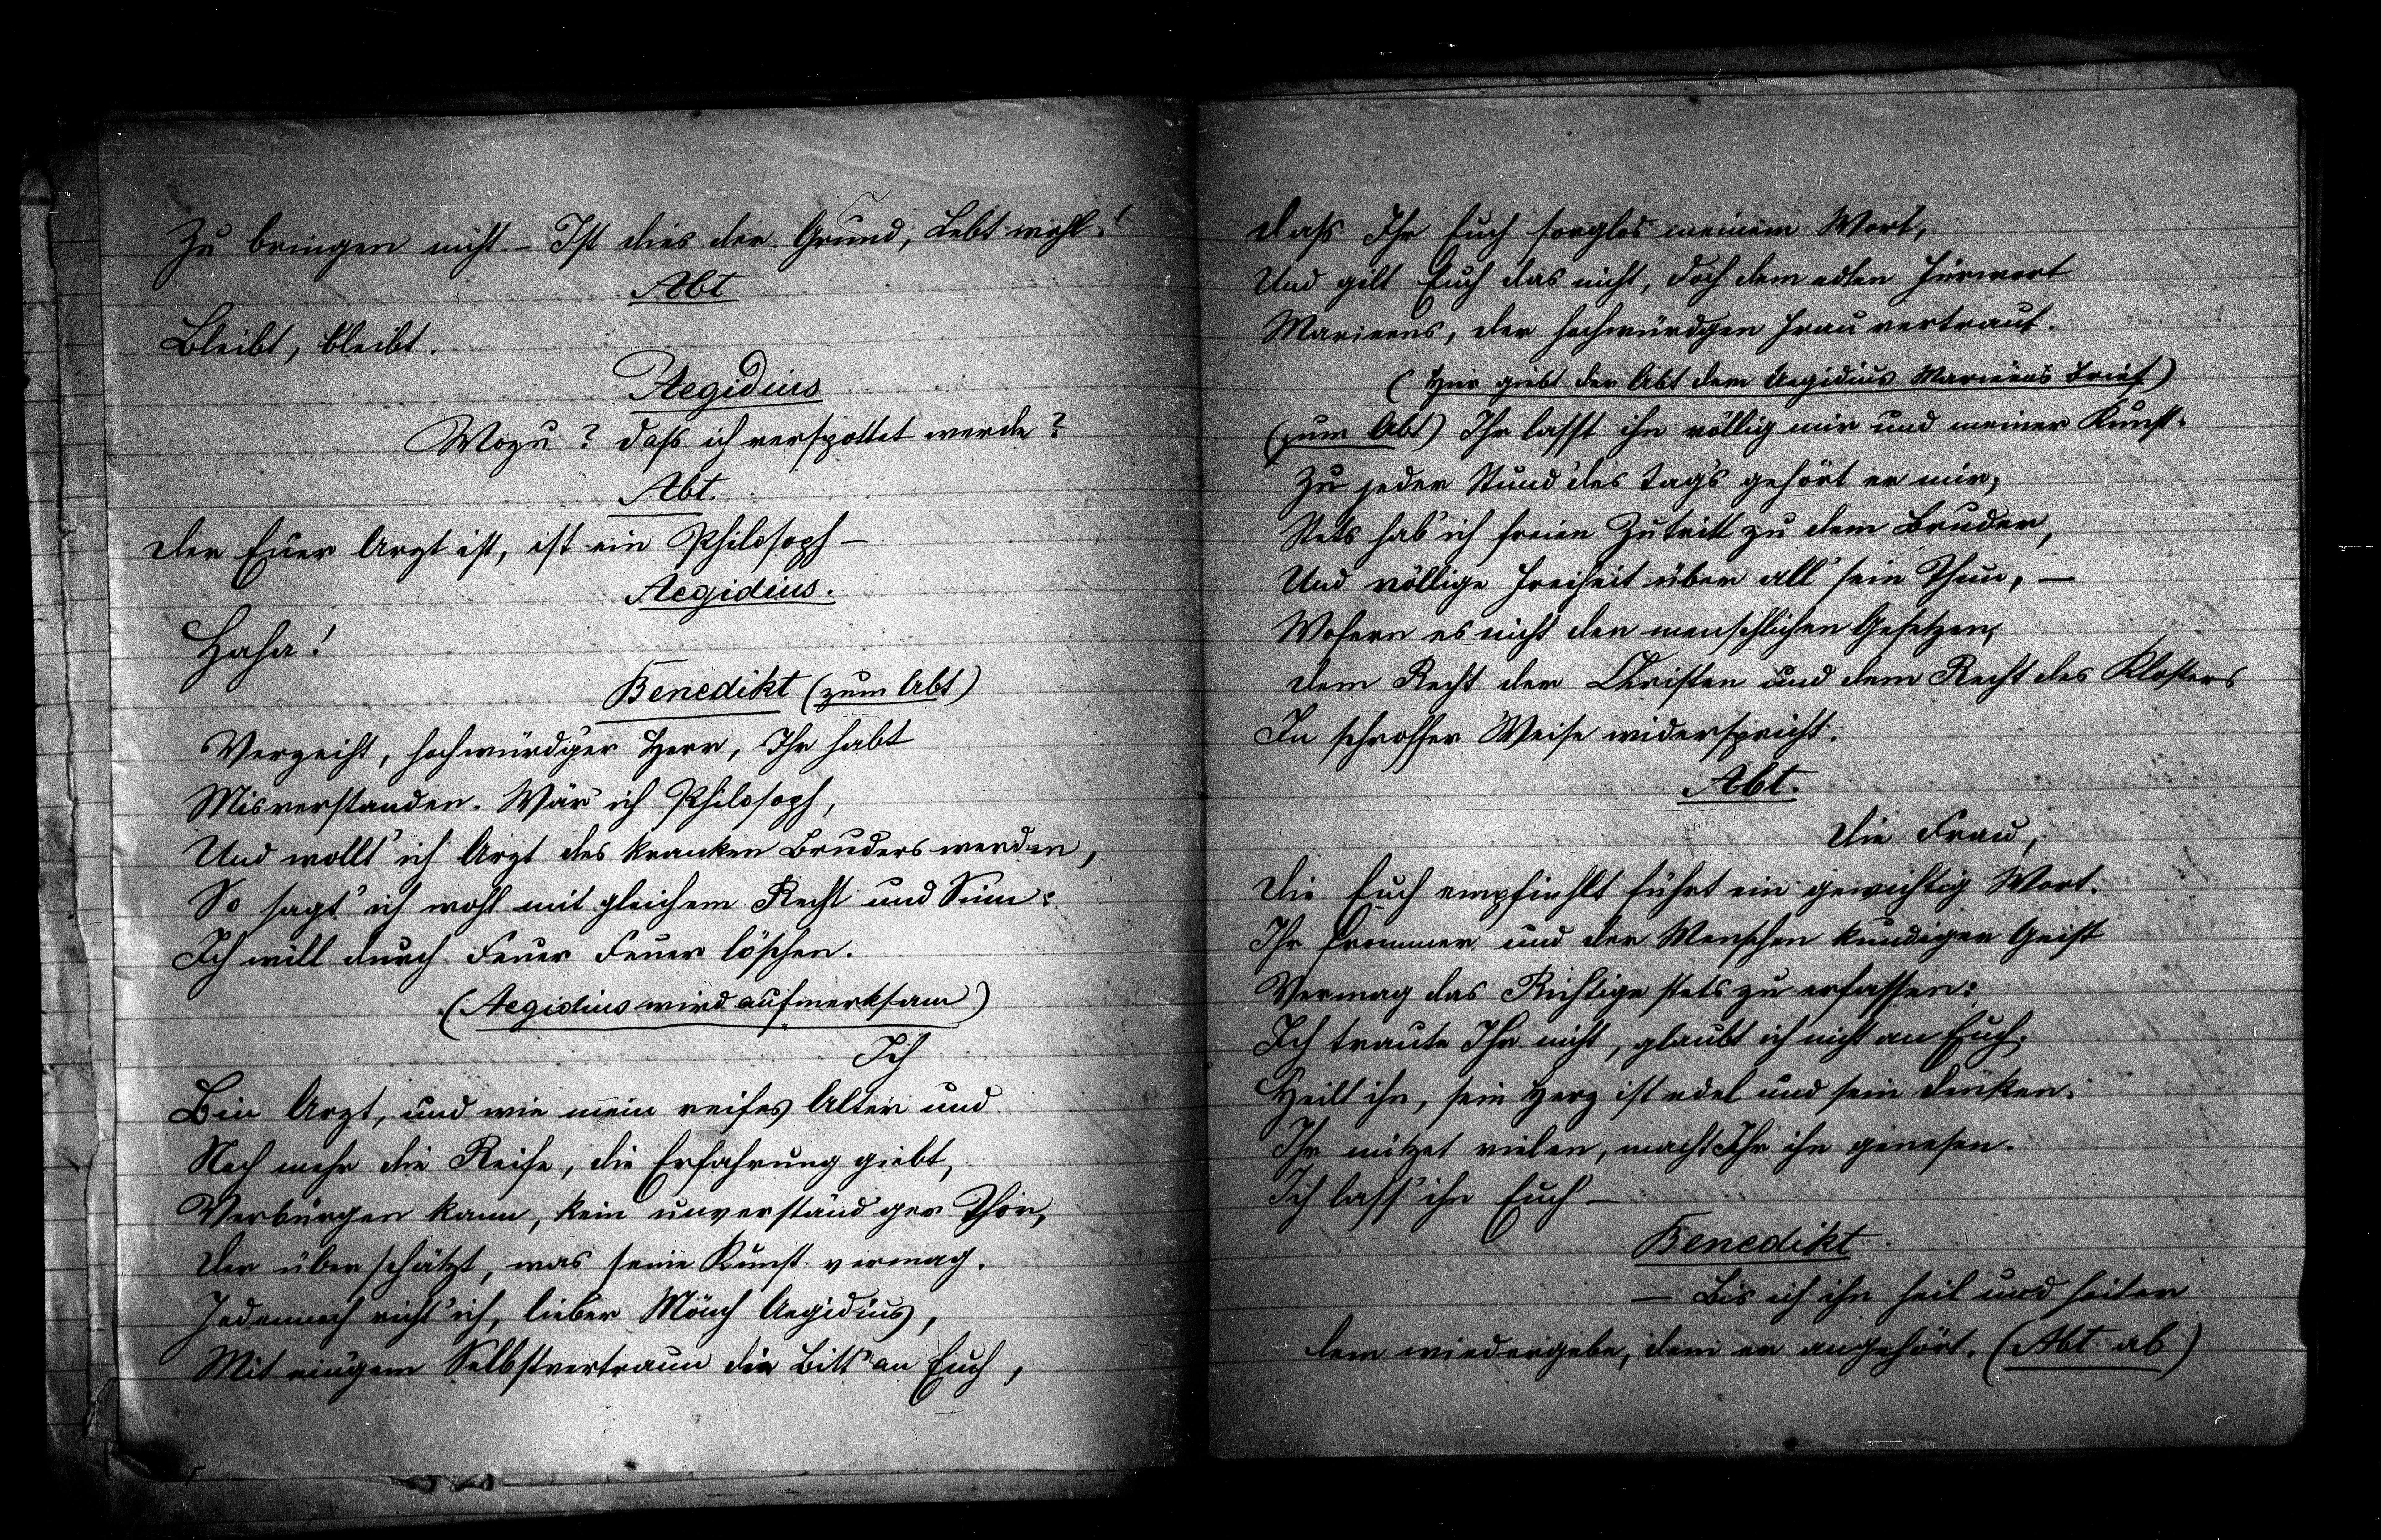 Zu bringen nicht. – Ist dies der Grund, Lebt wohl!
Abt
Bleibt, bleibt.
Aegidius
Wozu? Daß ich verspottet werde?
Abt.
Der Euer Arzt ist, ist ein Philosoph –
Aegidius.
Haha!
Benedikt (zum Abt)
Verzeiht, hochwürd'ger Herr, Ihr habt
Misverstanden. Wär' ich Philosoph,
Und wollt' ich Arzt des kranken Bruders werden,
So sagt' ich wohl mit gleichem Recht und Sinn:
Ich will durch Feuer Feuer löschen.
(Aegidius wird aufmerksam)
Ich
Bin Arzt, und wie mein reifes Alter und
Noch mehr die Reife, die Erfahrung giebt,
Verbürgen kann, kein unverständ'ger Thor,
Der überschätzt, was seine Kunst vermag.
Jedennoch richt' ich, lieber Mönch Aegidius,
Mit ein'gem Selbstvertraun die Bitt' an Euch,
Daß Ihr Euch sorglos meinem Wort,
Und gilt Euch das nicht, doch dem edlen Fürwort
Marieens, der hochwürdgen Frau vertraut.
(Hier giebt der Abt dem Aegidius Marieens Brief)
(zum Abt) Ihr lasst ihn völlig mir und meiner Kunst.
Zu jeder Stund' des Tag's gehört er mir;
Stets hab' ich freien Zutritt zu dem Bruder,
Und völlige Freiheit über all' sein Thun, –
Wofern es nicht den menschlichen Gesetzen,
Dem Recht der Christen und dem Recht des Klosters
In schroffer Weise widerspricht.
Abt.
Die Frau,
Die Euch empfiehlt führt ein gewichtig Wort.
Ihr frommer und der Menschen kundiger Geist
Vermag das Richtige stets zu erfassen:
Ich traute Ihr nicht, glaubt ich nicht an Euch.
Heilt ihn, sein Herz ist edel und sein Denken.
Ihr nützet vielen, macht Ihr ihn genesen.
Ich lass' ihn Euch –
Benedikt.
– Bis ich ihn heil und heiter
Dem wiedergebe, dem er angehört. (Abt ab)